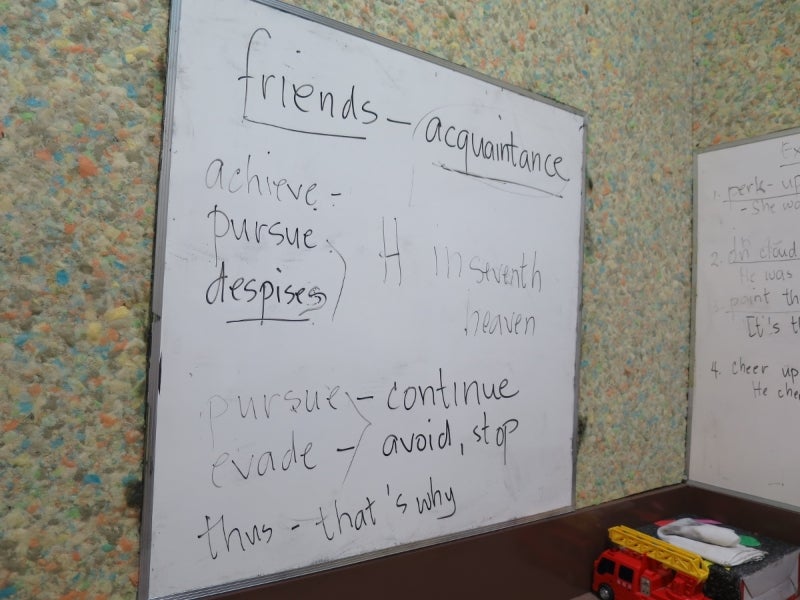 friends – acquaintance
achieve -
pursue
despises
H in seventh
heaven
pursue – continue
evade – avoid, stop
thus - that's why
Ex
1. perk-up
- She wa
2. on cloud
He was
3. paint th
It's th
4. cheer up
He che